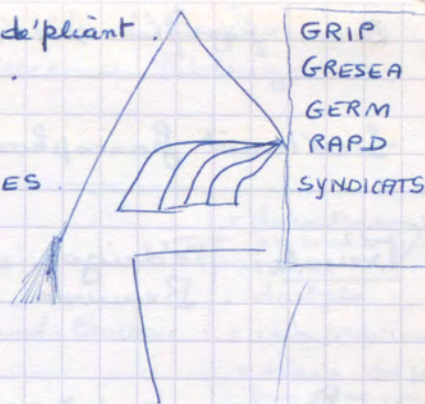 dépliant.
.
ES.
GRIP
GRESEA
GERM
RAPD
SYNDICATS